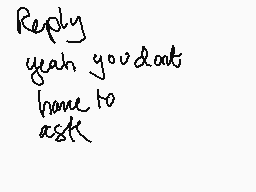 Reply
yeah you dont
have to
ask